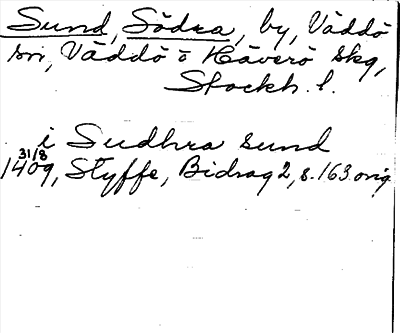 Sund, Södra, by, Väddö
sn, Väddö o Häverö skg,
Stockh. l.
i Sudhra sund
31/8
1409, Styffe, Bidrag 2, s. 163 orig.